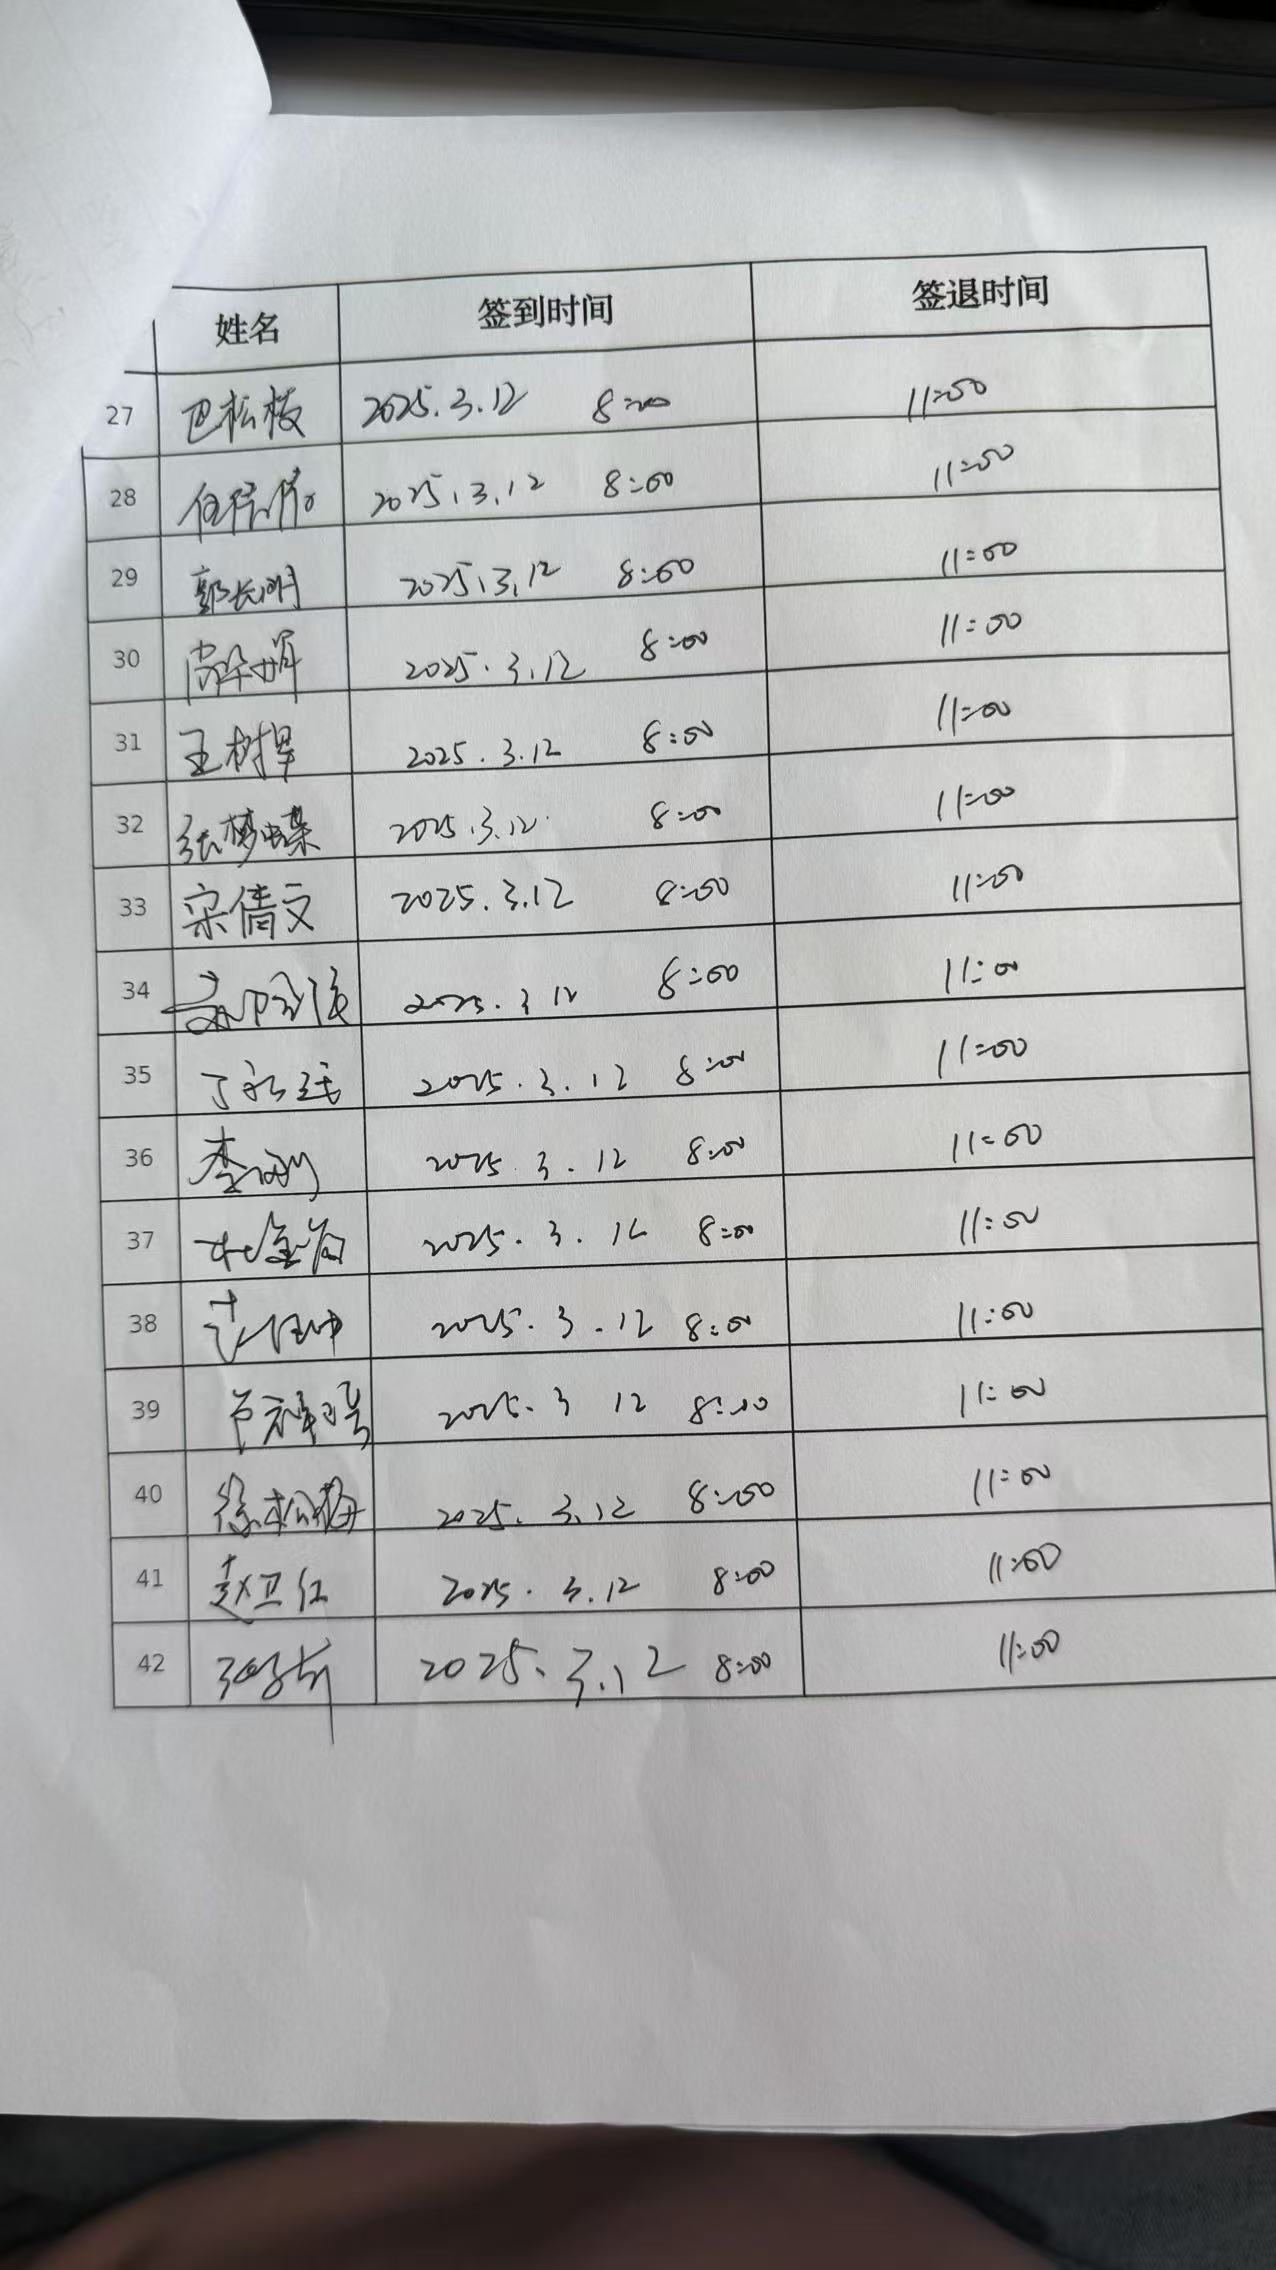 姓名 签到时间 签退时间
27 巴松枝 2025.3.12 8:00 11:00
28 2025.3.12 8:00 11:00
29 郭长明 2025.3.12 8:00 11:00
30 2025.3.12 8:00 11:00
31 王树军 2025.3.12 8:00 11:00
32 张梦蝶 2025.3.12 8:00 11:00
33 宋倩文 2025.3.12 8:00 11:00
34 2025.3 12 8:00 11:00
35 丁 2025.3.12 8:00 11:00
36 李 2025.3.12 8:00 11:00
37 2025.3.12 8:00 11:00
38 2025.3.12 8:00 11:00
39 2025.3 12 8:00 11:00
40 徐松梅 2025.3.12 8:00 11:00
41 赵卫红 2025.3.12 8:00 11:00
42 2025.3.12 8:00 11:00